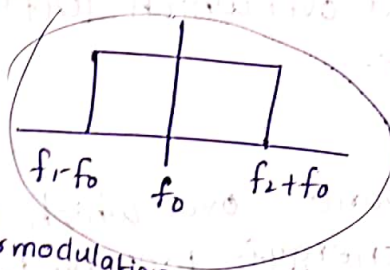 f₁-f₀ f₀ f₂+f₀
modulation